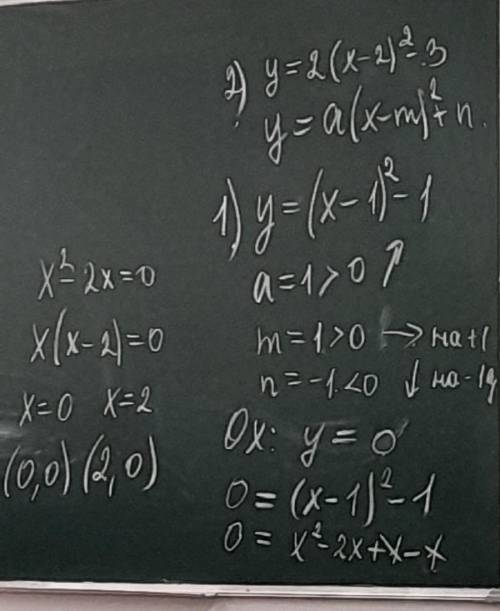 2) y=2(x-2)²-3
y=a(x-m)²+n.
1) y=(x-1)²-1
a=1>0 ↗
m=1>0 → на+1
n=-1<0 ↓ на-1
Ox: y=0
0=(x-1)²-1
0=x²-2x+1-1
x²-2x=0
x(x-2)=0
x=0 x=2
(0,0) (2,0)